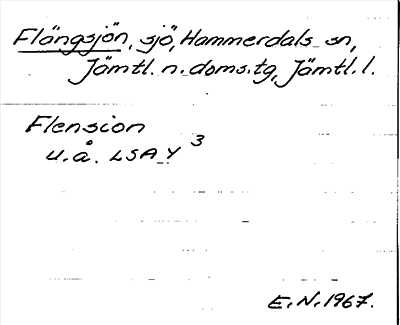 Flängsjön, sjö, Hammerdals sn,
Jämtl. n. doms.tg, Jämtl. l.
Flension
u.å. LSA Y 3
E.N. 1967.